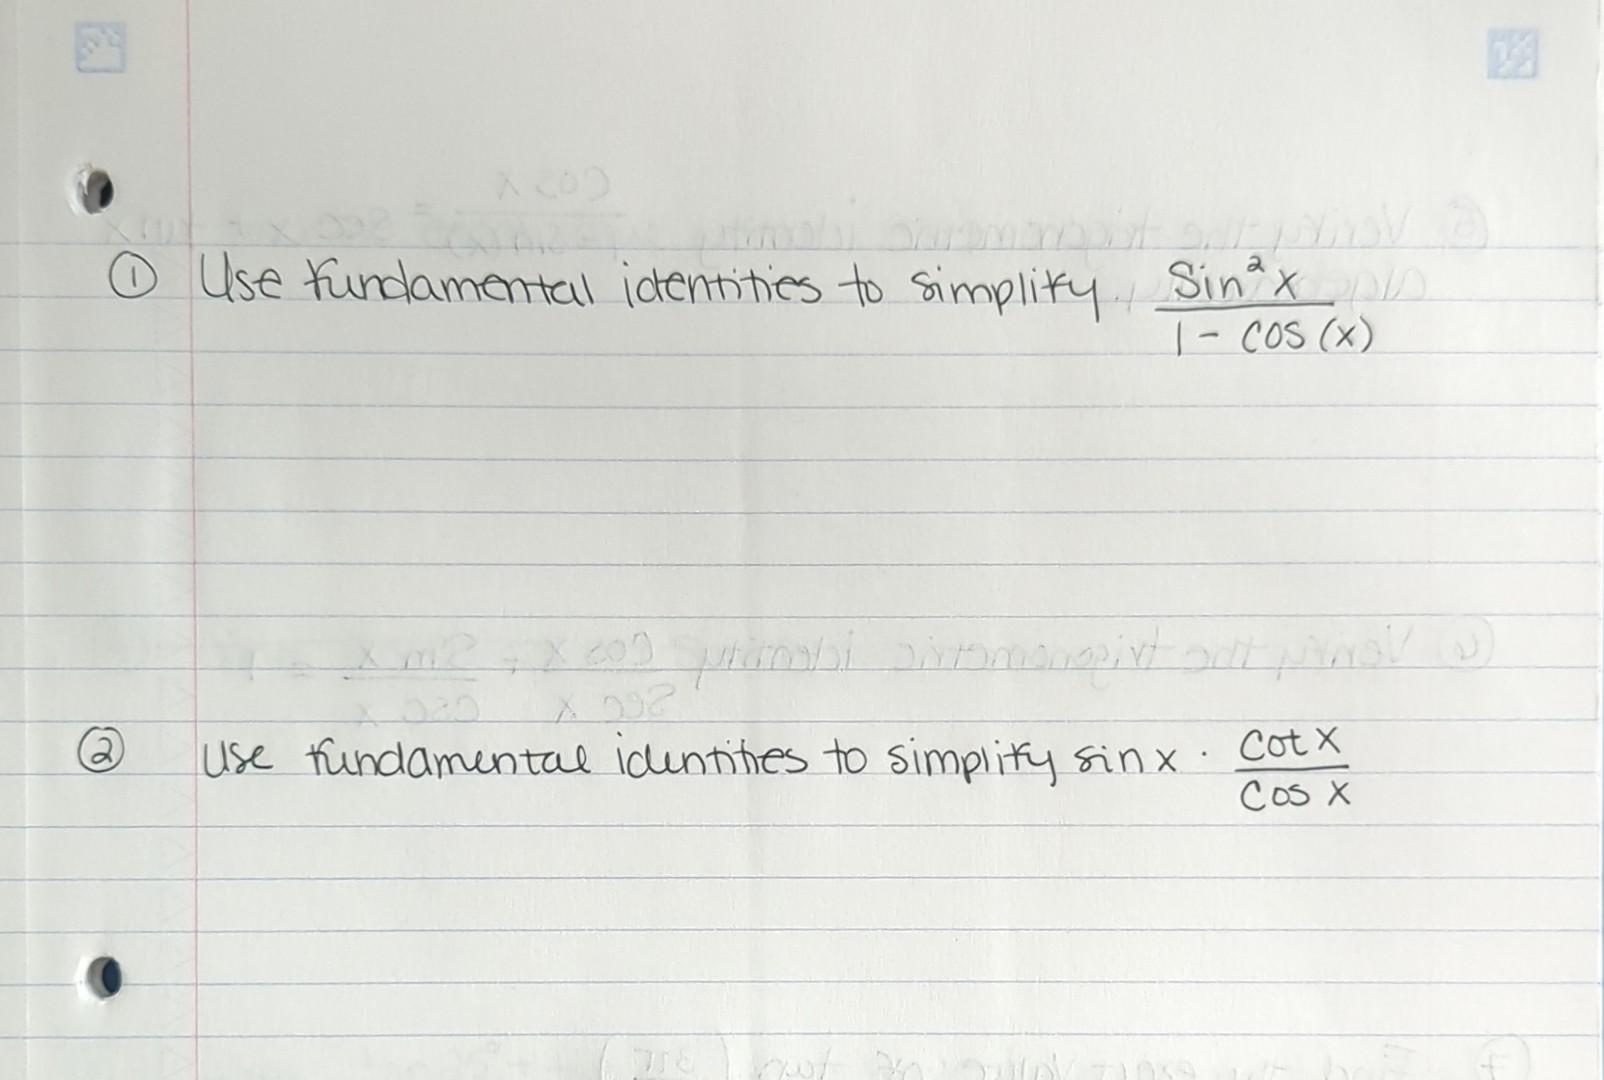 ① Use fundamental identities to simplify Sin²x / 1 - cos(x)
② Use fundamental identities to simplify sin x · Cot x / Cos x